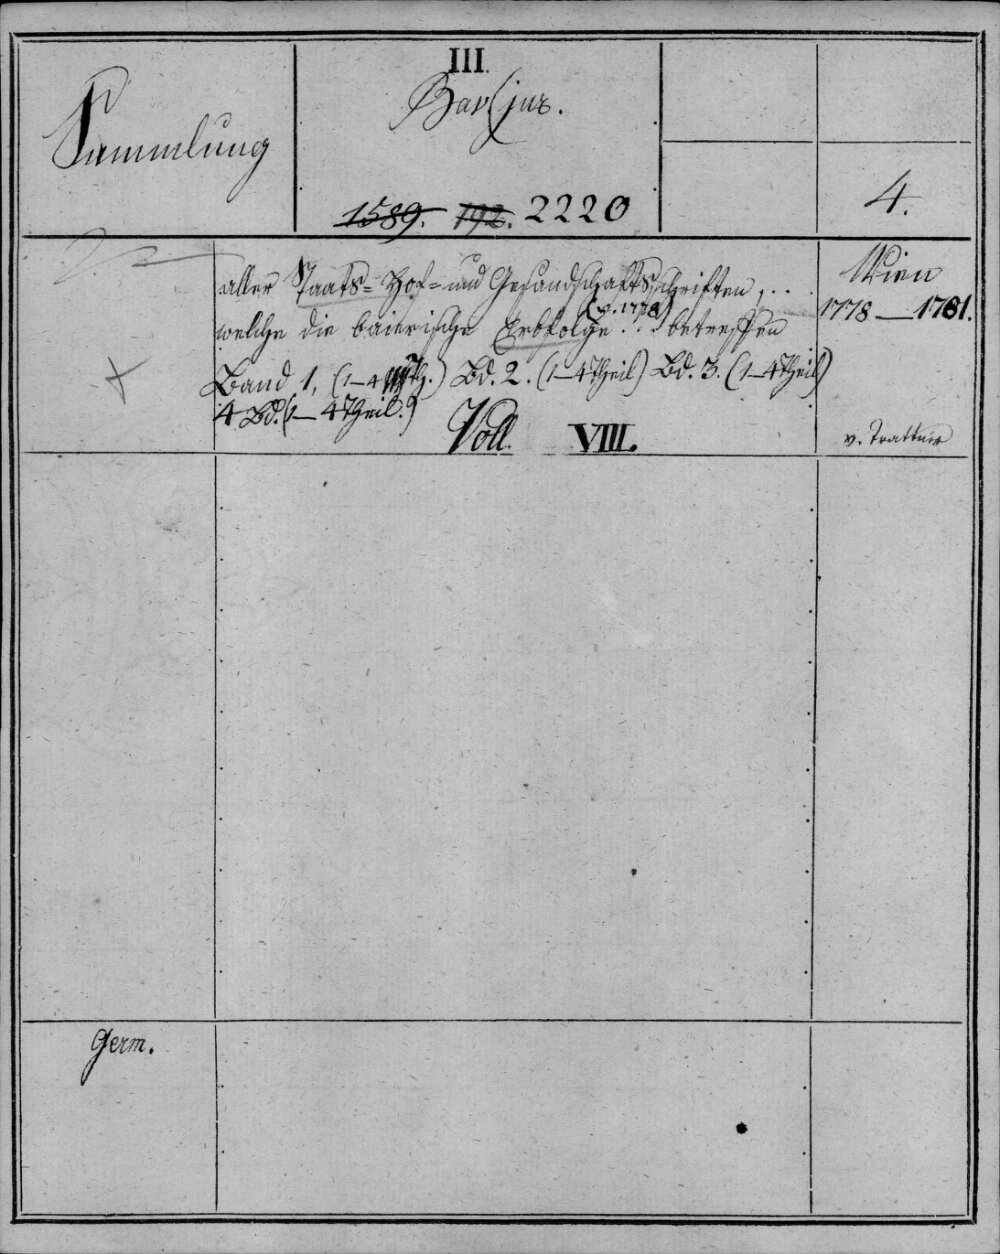 III.
Bav. jur.
Sammlung
4.
1589. 192. 2220
aller Staats= Hof= und Gesandschaftsschriften, ..
welche die baierische Erbfolge (v. 1778) ... betreffen
Band 1. (1–4 Th.) Bd. 2. (1–4 Theil) Bd. 3. (1–4 Theil)
4 Bd. (1–4 Theil.)
Voll. VIII.
Wien
1778–1781.
v. Trattner
Germ.